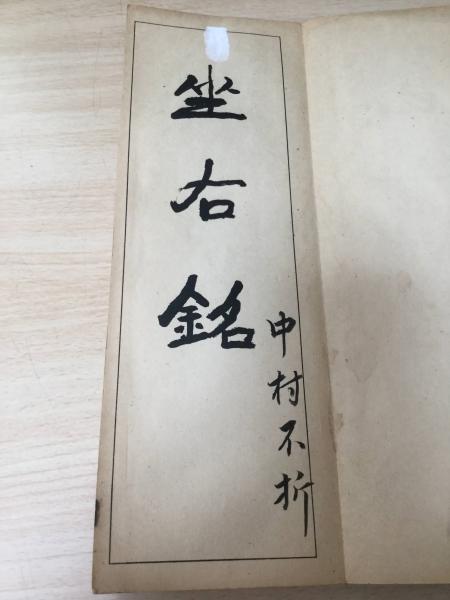 坐右銘
中村不折